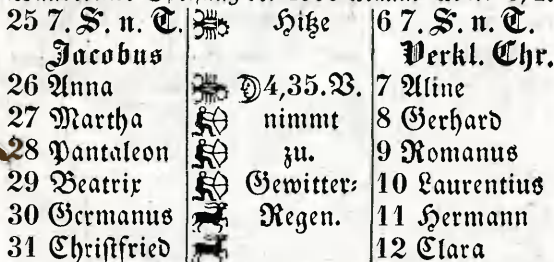 25 7. S. n. T. Hitze 6 7. S. n. T.
Jacobus Verkl. Chr.
26 Anna 4,35. V. 7 Aline
27 Martha nimmt 8 Gerhard
28 Pantaleon zu. 9 Romanus
29 Beatrix Gewitter- 10 Laurentius
30 Germanus Regen. 11 Hermann
31 Christfried 12 Clara